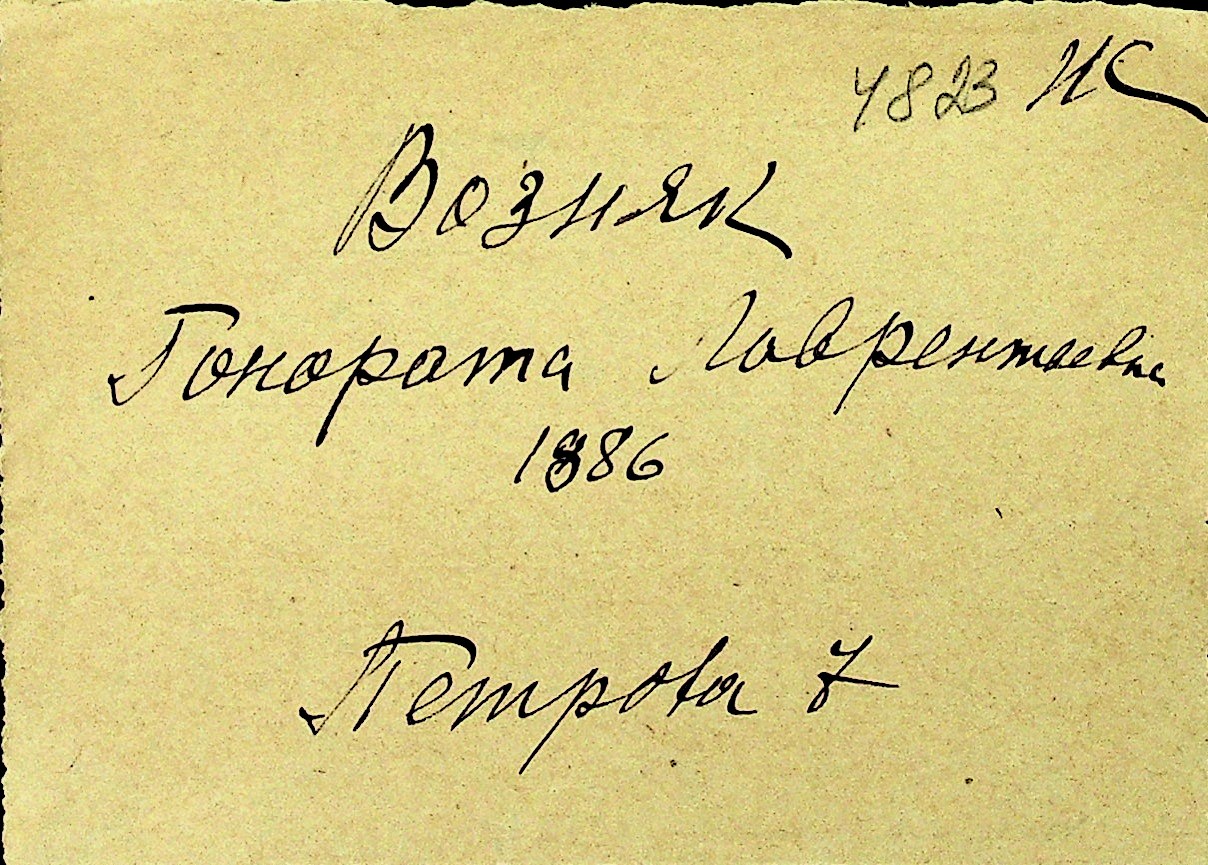 4823 ИС
Возняк
Гонората Лаврентьевна
1886
Петрова 7